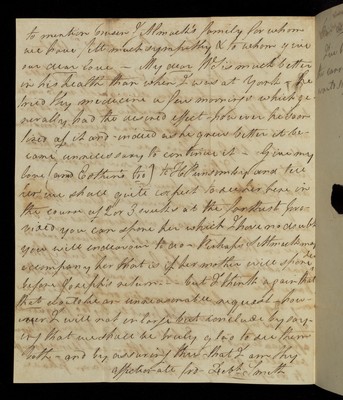 to mention Cousin J. Monach's family for whom
we have felt much sympathy & to whom give
our dear love — My dear Wm is much better
in his health than when I was at York — He
tried thy medicine a few mornings which ge-
nerally had the desired effect however he soon
tired of it and indeed as he grew better it be-
came unnecessary to continue it — Give my
love (and Esther's too) to H and tell
her we shall quite expect to see her here in
the course of 2 or 3 weeks at the farthest pro-
vided you can spare her which I have no doubt
you will endeavour to do — Perhaps may
accompany her that is if her mother will spare her
before Joseph's return — but I think again that
that would be an unreasonable request — how-
ever I will not enlarge but conclude by say-
ing that we shall be truly glad to see them
both — and by assuring thee that I am thy
affectionate frd — Debh Smith